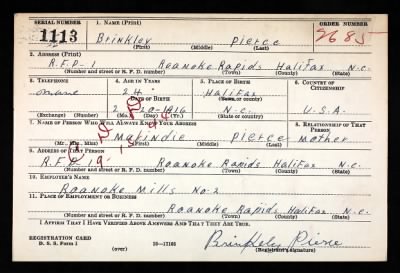 SERIAL NUMBER
1. NAME (Print)
ORDER NUMBER
1113
Brinkley Pierce
2685
(First) (Middle) (Last)
2. ADDRESS (Print)
R.F.D-1 Roanoke Rapids Halifax N.C.
(Number and street or R. F. D. number) (Town) (County) (State)
3. TELEPHONE
4. AGE IN YEARS
5. PLACE OF BIRTH
6. COUNTRY OF CITIZENSHIP
none
24
Halifax
DATE OF BIRTH
(Town or county)
2 20-1916
N.C.
U.S.A.
(Exchange) (Number) (Mo.) (Day) (Yr.) (State or country)
7. NAME OF PERSON WHO WILL ALWAYS KNOW YOUR ADDRESS
8. RELATIONSHIP OF THAT PERSON
Pierce mother
(Mr., Mrs., Miss) (First) (Middle) (Last)
9. ADDRESS OF THAT PERSON
R.F.D 1 Roanoke Rapids Halifax N.C.
(Number and street or R. F. D. number) (Town) (County) (State)
10. EMPLOYER'S NAME
Roanoke Mills No-2
11. PLACE OF EMPLOYMENT OR BUSINESS
Roanoke Rapids Halifax N.C.
(Number and street or R. F. D. number) (Town) (County) (State)
I AFFIRM THAT I HAVE VERIFIED ABOVE ANSWERS AND THAT THEY ARE TRUE.
REGISTRATION CARD
D. S. S. Form 1
(over)
16-17105
Brinkley Pierce
(Registrant's signature)